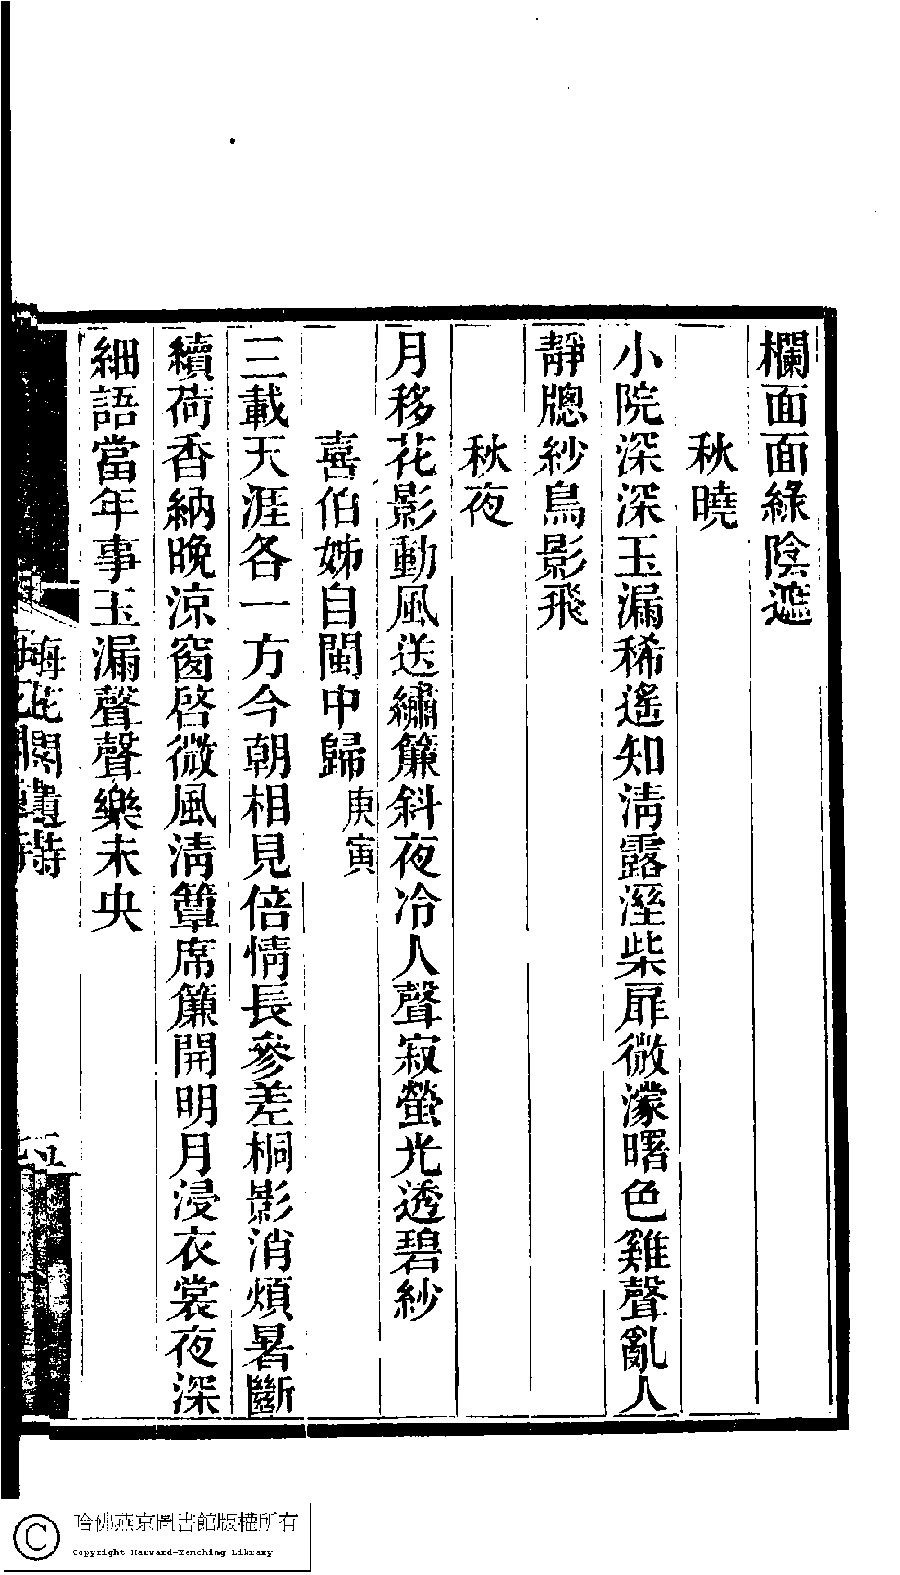 欄面面綠陰遮
秋曉
小院深深玉漏稀遙知淸露溼柴扉微濛曙色雞聲亂人
靜牕紗鳥影飛
秋夜
月移花影動風送繡簾斜夜冷人聲寂螢光透碧紗
喜伯姊自閩中歸庚寅
三載天涯各一方今朝相見倍情長參差桐影消煩暑斷
續荷香納晚涼窗啓微風淸簟席簾開明月浸衣裳夜深
細語當年事玉漏聲聲樂未央
梅花閣遺詩
五
哈佛燕京圖書館版權所有
Copyright Harvard-Yenching Library